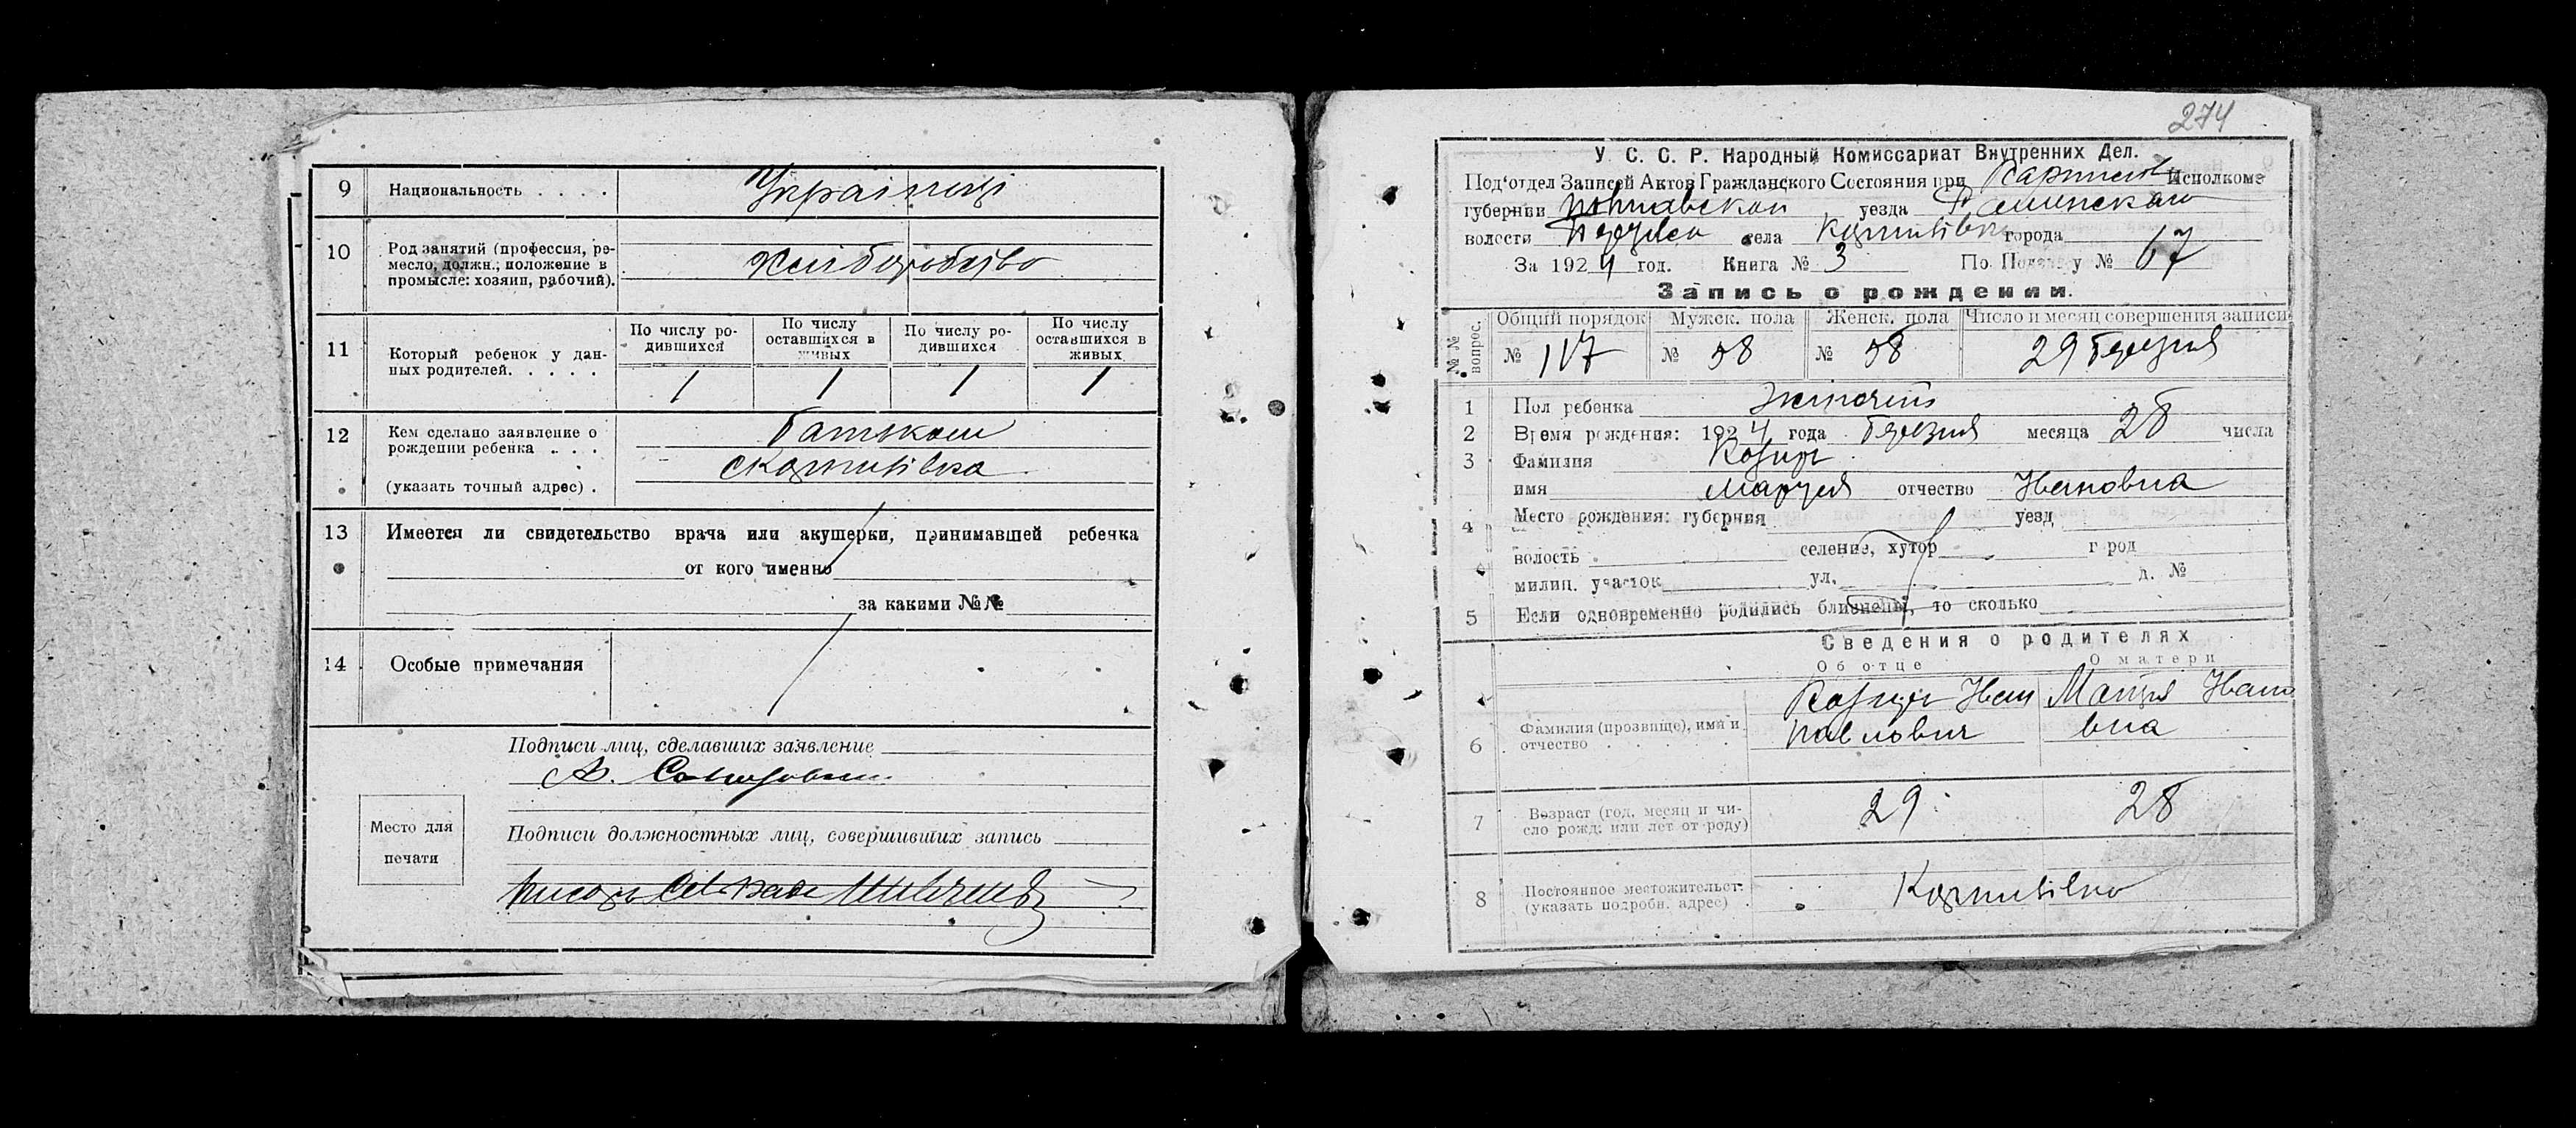 9 Национальность . . . . Українці
10 Род занятий (профессия, ре-
месло, должн.; положение в
промысле: хозяин, рабочий). Хліборобство
11 Который ребенок у дан-
ных родителей. . . . .
По числу ро-
дившихся
По числу
оставшихся в
живых
По числу ро-
дившихся
По числу
оставшихся в
живых
1 1 1 1
12 Кем сделано заявление о
рождении ребенка . . . Батьком
(указать точный адрес) .
13 Имеется ли свидетельство врача или акушерки, принимавшей ребенка
от кого именно
за какими №№
14 Особые примечания
Подписи лиц, сделавших заявление
Место для
печати
Подписи должностных лиц, совершивших запись
274
У. С. С. Р. Народный Комиссариат Внутренних Дел.
Под'отдел Записей Актов Гражданского Состояния при Исполкоме
губернии Полтавской уезда
волости села города
За 1924 год. Книга № 3 По № 67
Запись о рождении.
№№ вопрос.
Общий порядок Мужск. пола Женск. пола Число и месяц совершения записи
№ 117 № 58 № 58 29 Березня
1 Пол ребенка
2 Время рождения: 1924 года Березня месяца 28 числа
3 Фамилия
имя Маруся отчество Ивановна
4 Место рождения: губерния уезд
волость селение, хутор город
милиц. участок ул. д. №
5 Если одновременно родились близнецы, то сколько
Сведения о родителях
Об отце О матери
6 Фамилия (прозвище), имя и
отчество . . . . . Иван Ивано
Павлович вна
7 Возраст (год, месяц и чи-
сло рожд: или лет от роду) 29 28
8 Постоянное местожительст.
(указать подробн. адрес) .